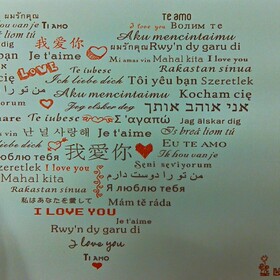 ผมรักคุณ te amo
Ik hou van je Ti amo I love you Волим те
Aku mencintaimu
我爱你 ผมรักคุณ Rwy'n dy garu di
LOVE Je t'aime Mi amas vin Mahal kita I love you
Te iubesc Rakastan sinua
Ich liebe dich Tôi yêu bạn Szeretlek
من تو را دوست Aku mencintaimu Kocham cię
Te iubesc Jag elsker deg אני אוהב אותך
Je t'aime Σ'αγαπώ Jag älskar dig
난 널 사랑해 Je t'aime Is breá liom tú
liebe dich 我爱你 Eu te amo
Te iubesc Ik hou van je
люблю тебя Seni seviyorum
Szeretlek I love you من تو را دوست دارم
Rakastan sinua Я люблю тебя
私はあなたを愛して Mám tě ráda
I LOVE YOU
Je t'aime
Rwy'n dy garu di
I love you
Ti amo